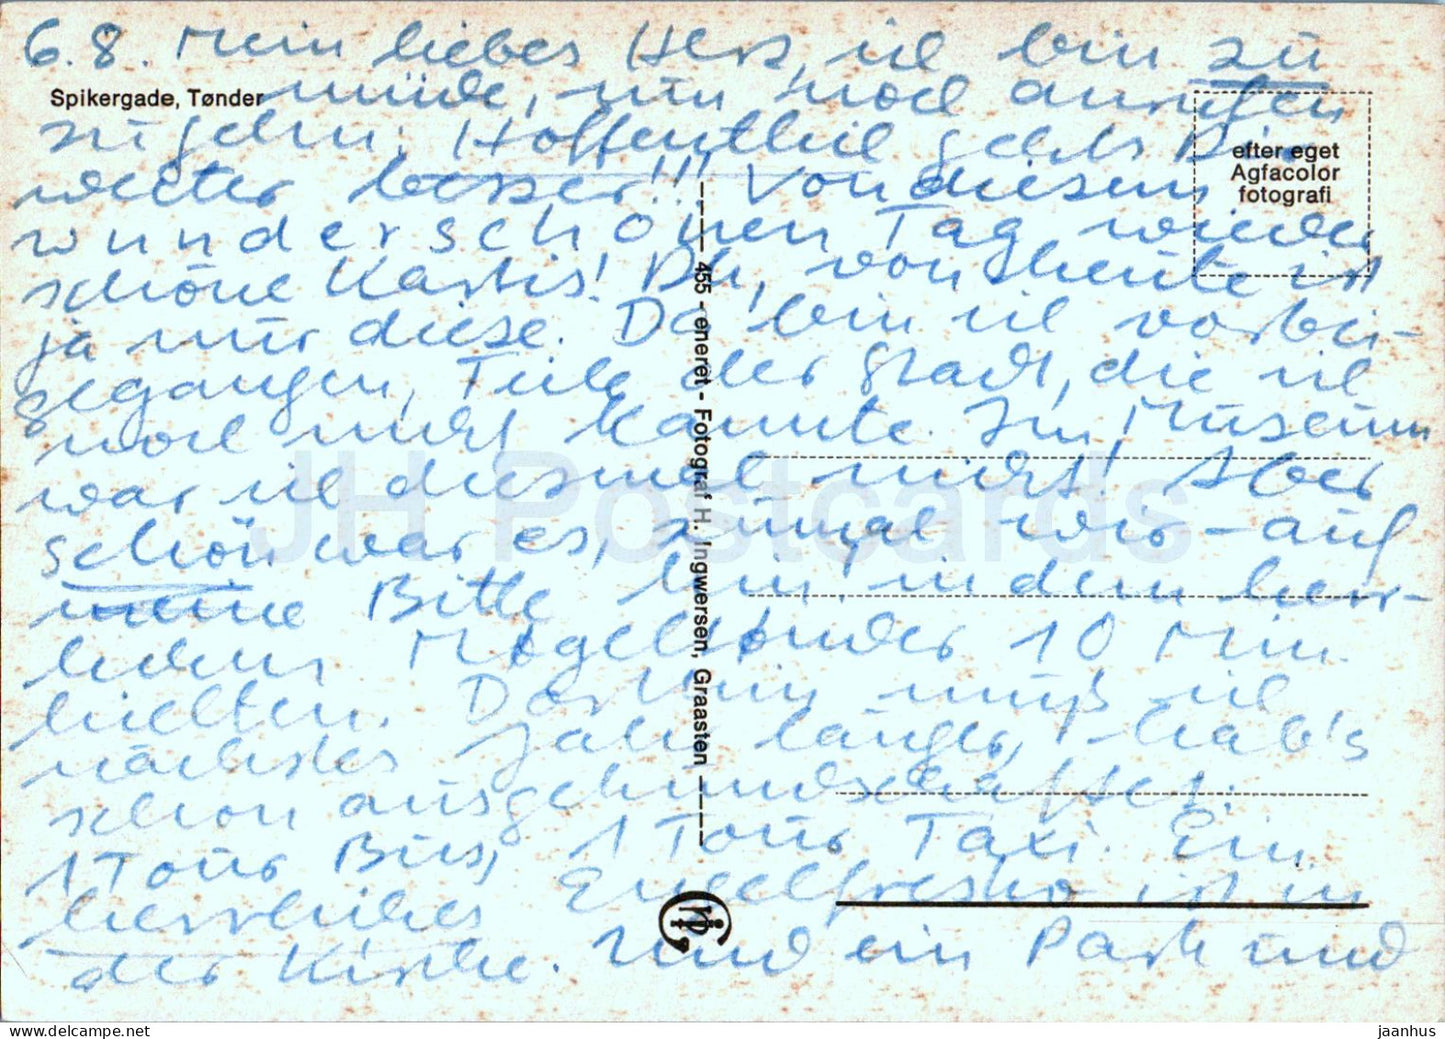 6.8. Mein liebes Herz, ich bin zu
Spikergade, Tønder
müde, um noch anrufen
zu gehn. Hoffentlich geht's Dir
weiter besser!!! Von diesem
wunderschönen Tag wieder
schöne Kartis! Dh, von heute ist
ja nur diese. Da bin ich vorbei-
gegangen, Teile der Stadt, die ich
noch nicht kannte. Im Museum
war ich diesmal nicht! Aber
schön war es, zumal wir - auf
meine Bitte hin in dem herr-
lichen Møgeltønder 10 Min.
hielten. Dorthin muß ich
nächstes Jahr länger, hab's
schon ausgekundschaftet:
1 Tour Bus, 1 Tour Taxi. Ein
herrliches Engelfresko ist in
der Kirche. Und ein Park und
efter eget
Agfacolor
fotografi
455 - eneret - Fotograf H. Ingwersen, Graasten
JH Postcards
hip.com
jaanhus